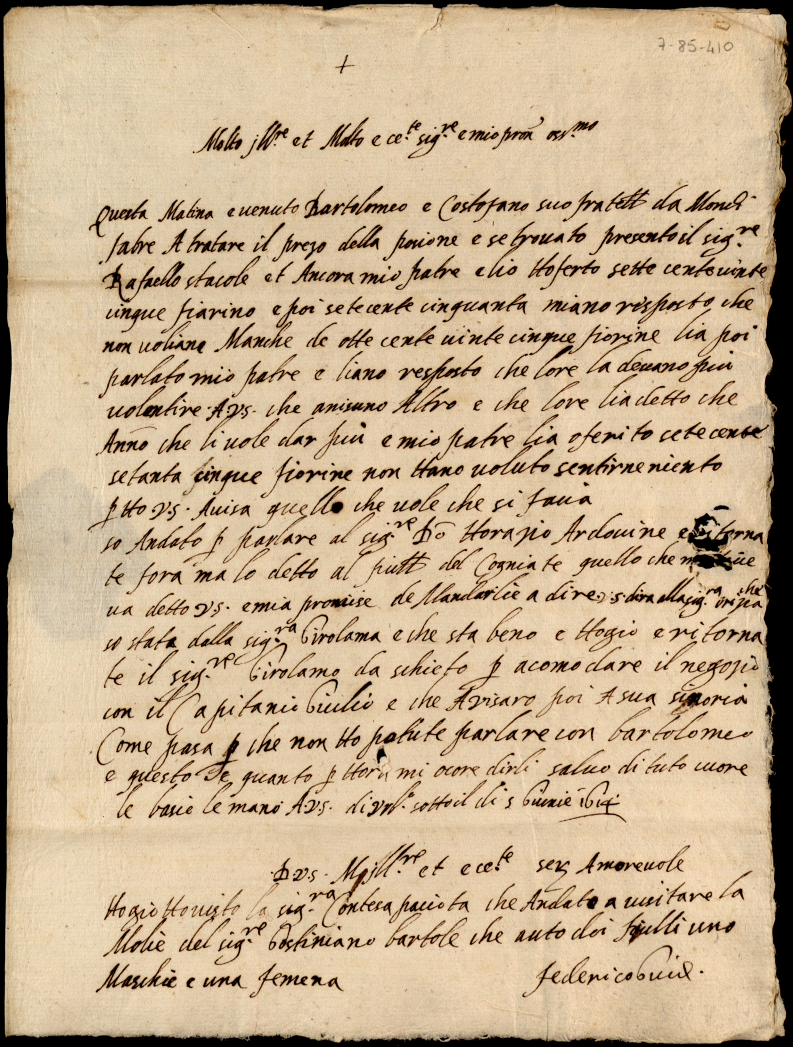 7-85-410
+
Molto jll.re et Molto e ce.te sig.re e mio pron oss.mo
Questa Matina e venuto Bartolomeo e Costofano suo fratell da Mondi
fabre A tratare il prezo della posione e se trovato presento il sig.re
Rafaello stacole et Ancora mio patre e lio Hoferto sette cente vinte
cinque fiarino e poi setecente cinquanta miano resposto che
non voliano Manche de otte cente vinte cinque fiorine lia poi
parlato mio patre e liano resposto che lore la devano più
volentire A vs. che anisuno Altro e che lore lia detto che
Anno che li vole dar più e mio patre lia oferito sete cente
setanta cinque fiorine non Hano voluto sentirne niento
p tto vs. Avisa quello che vole che si facia
so Andato p parlare al sig.re Do Horazio Ardovine e ritorna
te fora ma lo detto al fiull del Cogniate quello che
va detto vs. e mia promise de Mandarlie a dire vs dira alla sig.ra orizia che
so stata dalla sig.ra Girolama e che sta beno e Hogio e ritorna
te il sig.re Girolamo da schieto p acomodare il negozio
con il Capitanio Giulio e che Avisaro poi A sua signoria
Come pasa p che non Ho potute parlare con bartolomeo
e questo e quanto p Hora mi ocore dirli salvo di tuto cuore
le bascio le mano A vs. di sotto il di 5 Giunie
D vs. M jll.re et e ce.te ser Amorevole
Hogio Ho visto la sig.ra Contesa paciota che Andata a visitare la
Molie del sig.re Gostiniano bartole che auto doi fiulli uno
Maschie e una femena federico Guid.